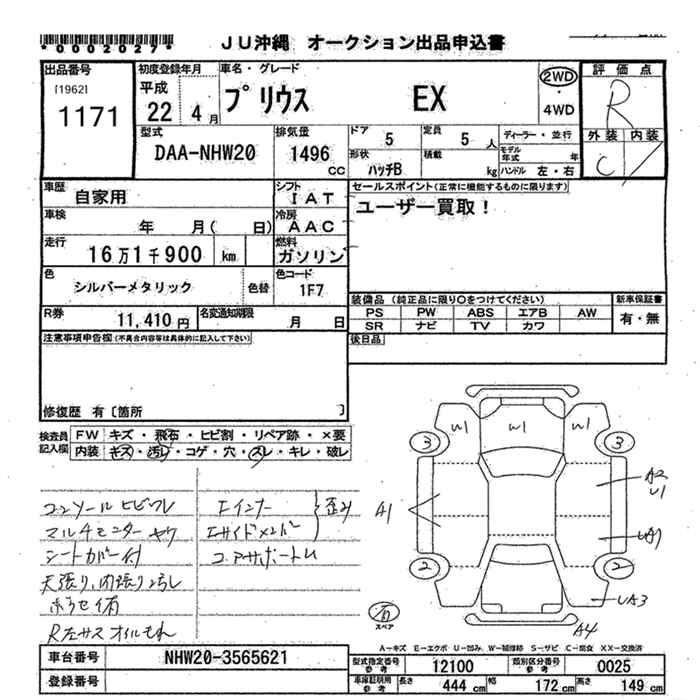 *0002027*
JU沖縄 オークション出品申込書
出品番号
[1962]
1171
初度登録年月
平成
22 4月
車名・グレード
プリウス EX
2WD
・
4WD
評価点
R
外装 内装
C
型式
DAA-NHW20
排気量
1496
CC
ドア
5
定員
5人
形状
ハッチB
積載
kg
ディーラー・並行
モデル年式 年
ハンドル 左・右
車歴
自家用
シフト
IAT
車検
年 月( 日)
冷房
AAC
走行
16万1千900 km
燃料
ガソリン
色
シルバーメタリック
色替
色コード
1F7
R券
11,410円
名変通知期限
月 日
セールスポイント(正常に機能するものに限ります)
ユーザー買取!
装備品(純正品に限り○をつけてください)
PS PW ABS エアB AW
SR ナビ TV カワ
新車保証書
有・無
後日品
注意事項申告欄(不具合内容等は具体的に記入して下さい)
修復歴 有〔箇所 〕
検査員
記入欄
FW キズ・飛石・ヒビ割・リペア跡・×要
内装 キズ・汚レ・コゲ・穴・スレ・キレ・破レ
コンソールヒビワレ
マルチモニターヤケ
シートカバー付
天張り、内張り汚レ
R左サスオイルもれ
Eインナー
Eサイドメンバー
コアサポートム
歪み
W1 W1 W1
3 3
A2
U1
A1
UA1
2 2
UA3
A4
有
スペア
A-キズ E-エクボ U-凹み W-補修跡 S-サビ C-腐食 XX-交換済
車台番号
NHW20-3565621
登録番号
型式指定番号
参考
12100
類別区分番号
参考
0025
車庫証明用
参考
長さ 444 cm 幅 172 cm 高さ 149 cm